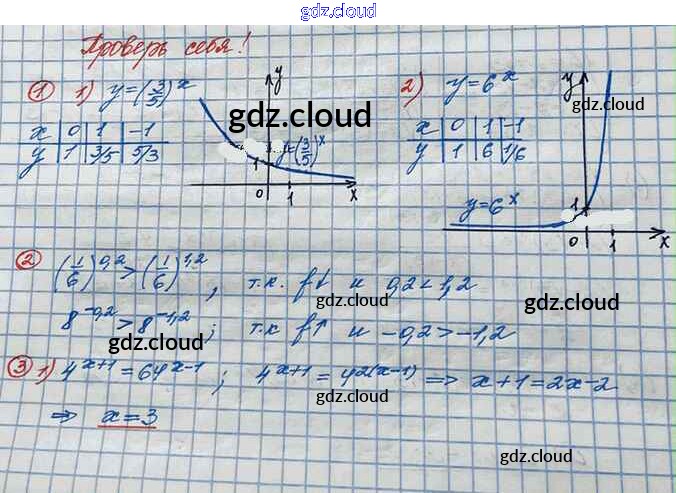 gdz.cloud
Проверь себя!
① 1) y=(3/5)^x
x | 0 | 1 | -1
y | 1 | 3/5 | 5/3
y
gdz.cloud
y=(3/5)^x
1
0 1 x
2) y=6^x
x | 0 | 1 | -1
y | 1 | 6 | 1/6
y
gdz.cloud
gdz.cloud
y=6^x
1
0 1 x
② (1/6)^0,2 > (1/6)^1,2, т.к. f↓ и 0,2<1,2
gdz.cloud
gdz.cloud
8^-0,2 > 8^-1,2; т.к f↑ и -0,2>-1,2
gdz.cloud
③ 1) 4^x+1 = 64^x-1; 4^x+1 = 4^2(x-1) => x+1=2x-2
gdz.cloud
=> x=3
gdz.cloud